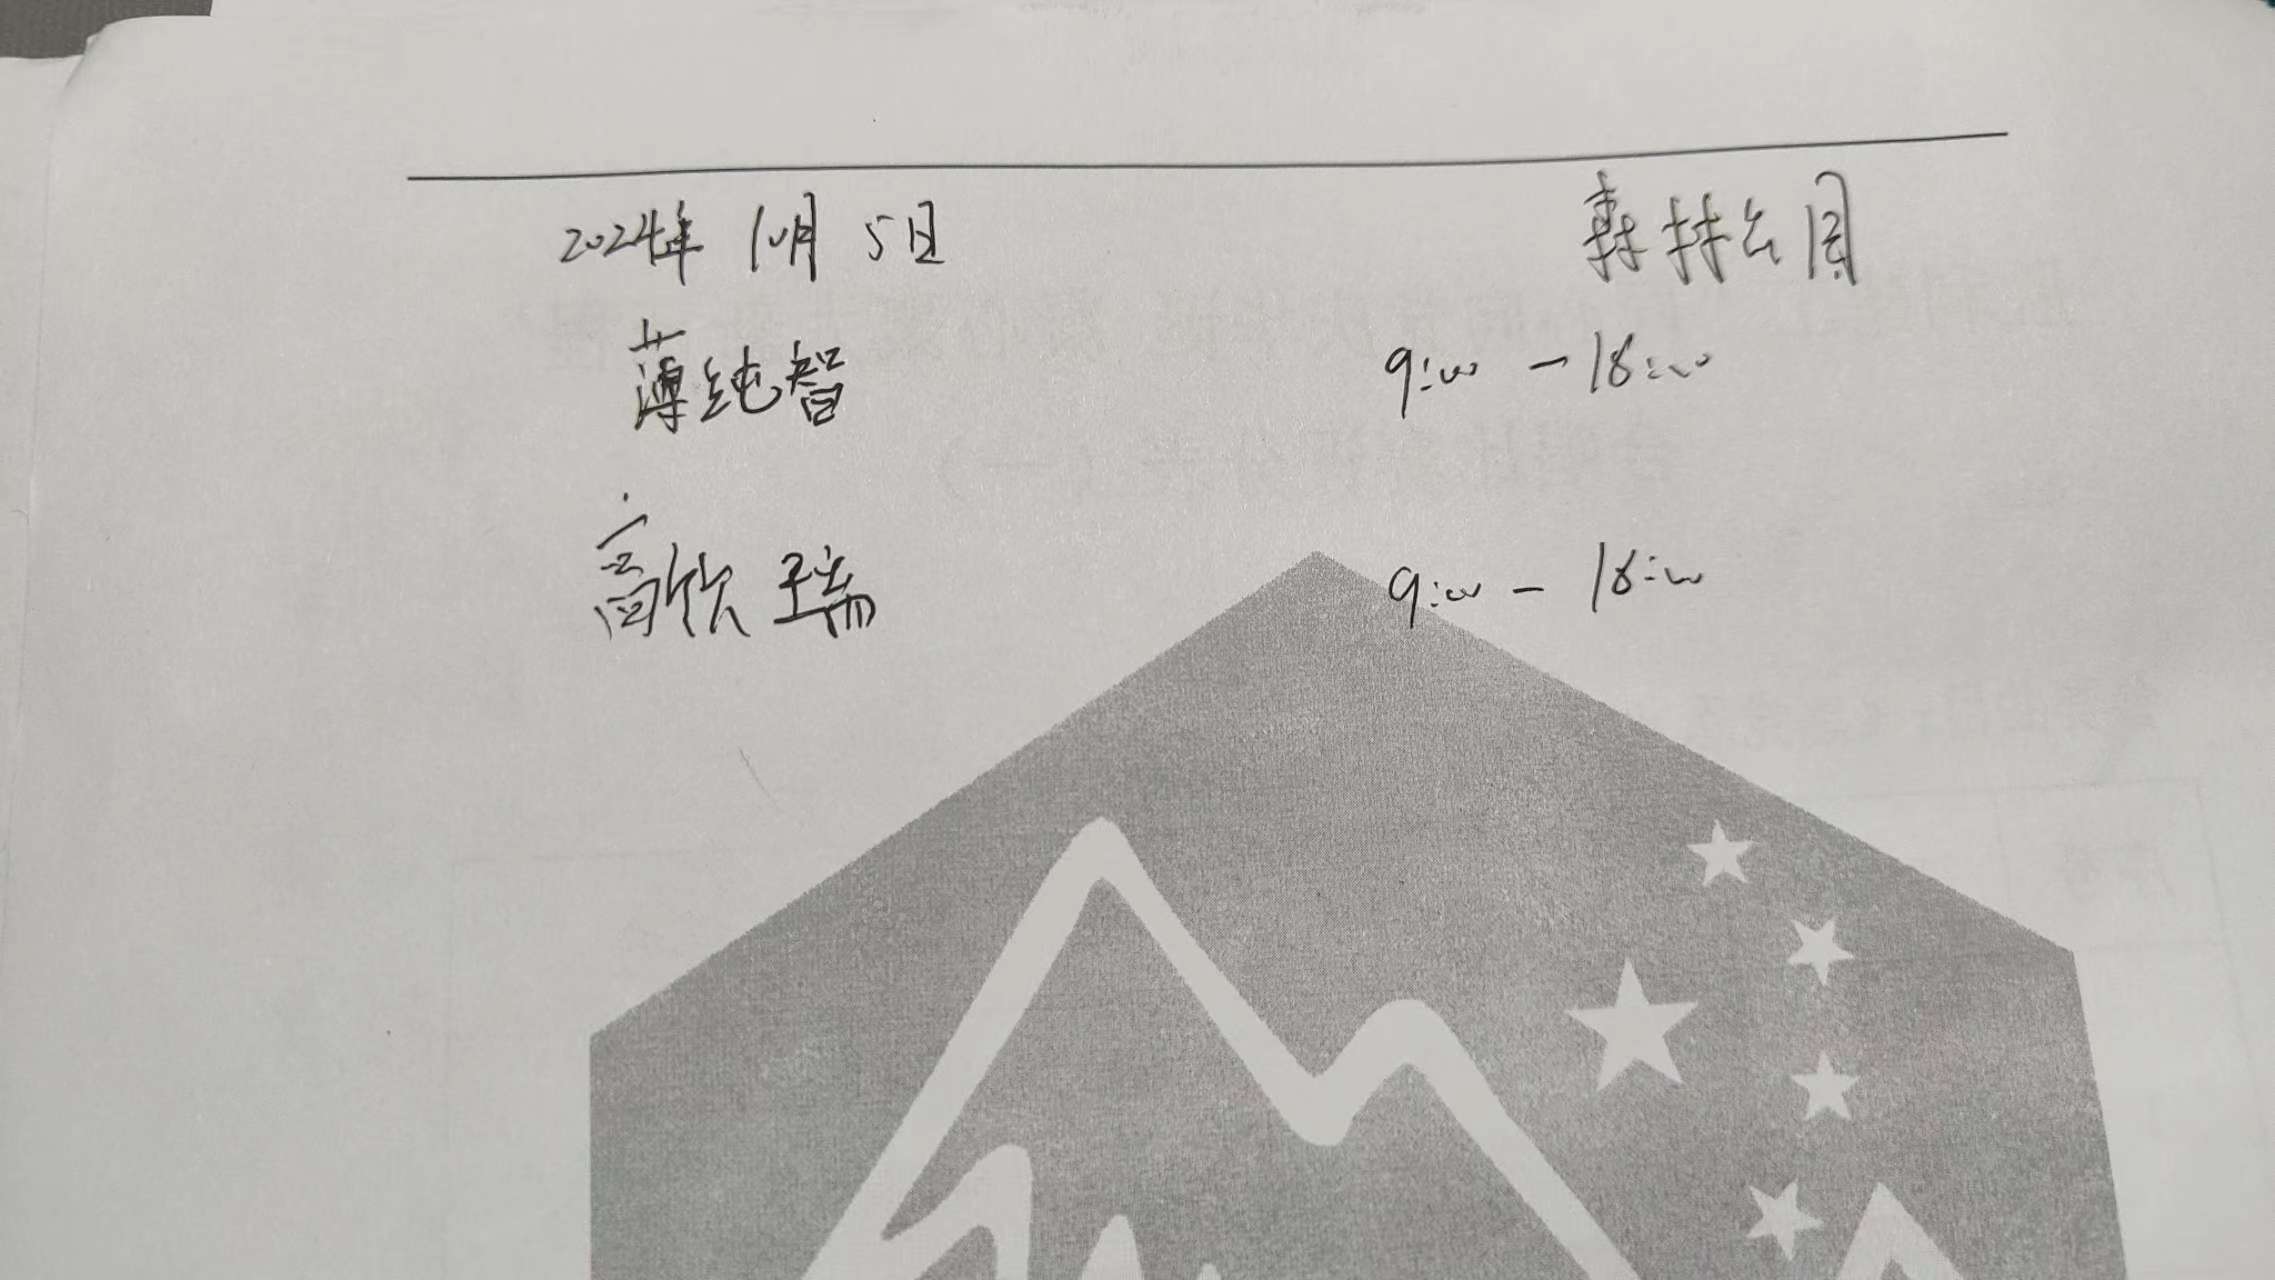 2024年 10月 5日 森林公园
薄纯智 9:00 - 18:00
高欣瑞 9:00 - 18:00